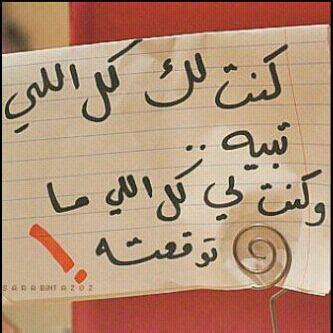 كنت لك كل اللي
تبيه ..
وكنت لي كل اللي ما
توقعته !
SARABINTAZOZ